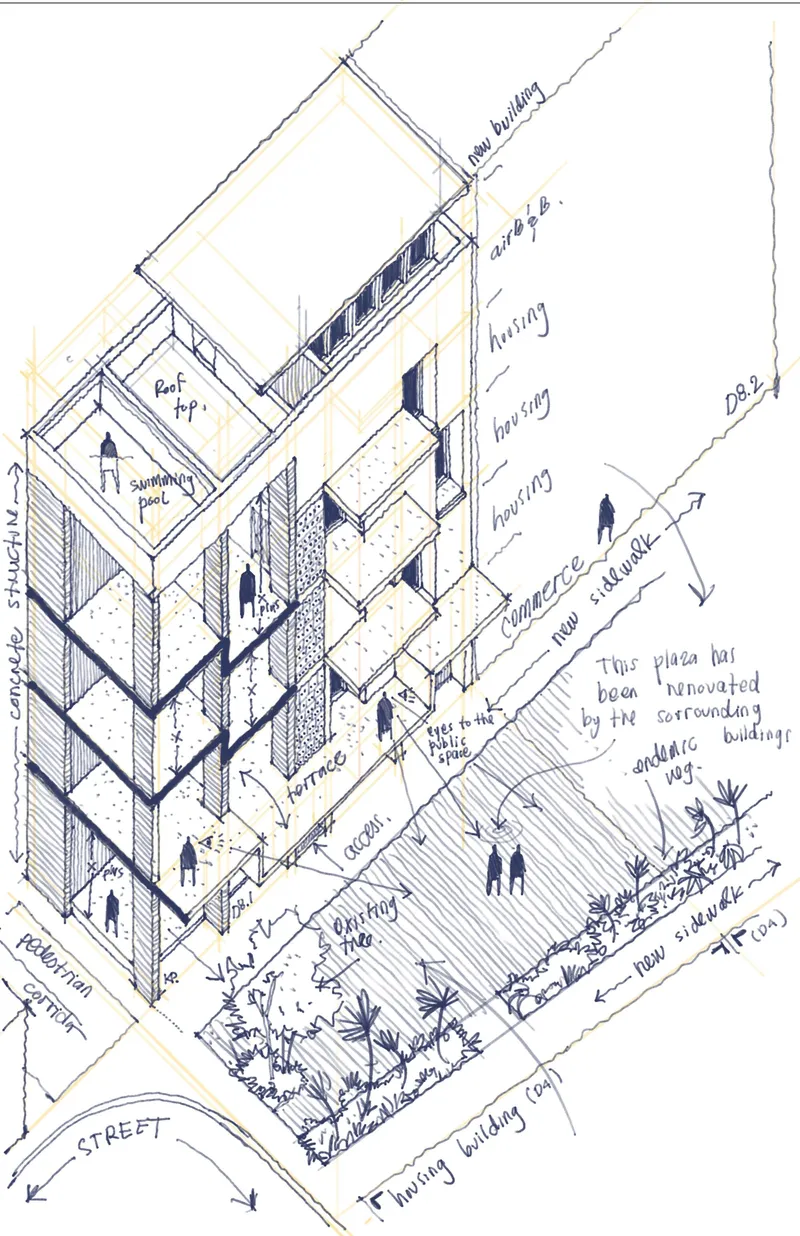 new building
airB&B.
housing
housing
housing
commerce
D8.2
new sidewalk
Roof
top.
swimming
pool
concrete structure
plus
plus
terrace
eyes to the
public
space
access.
This plaza has
been renovated
by the sorrounding
buildings
endemic
veg.
existing
tree.
D8.1
new sidewalk
(D4)
pedestrian
corridor
STREET
housing building (D4)